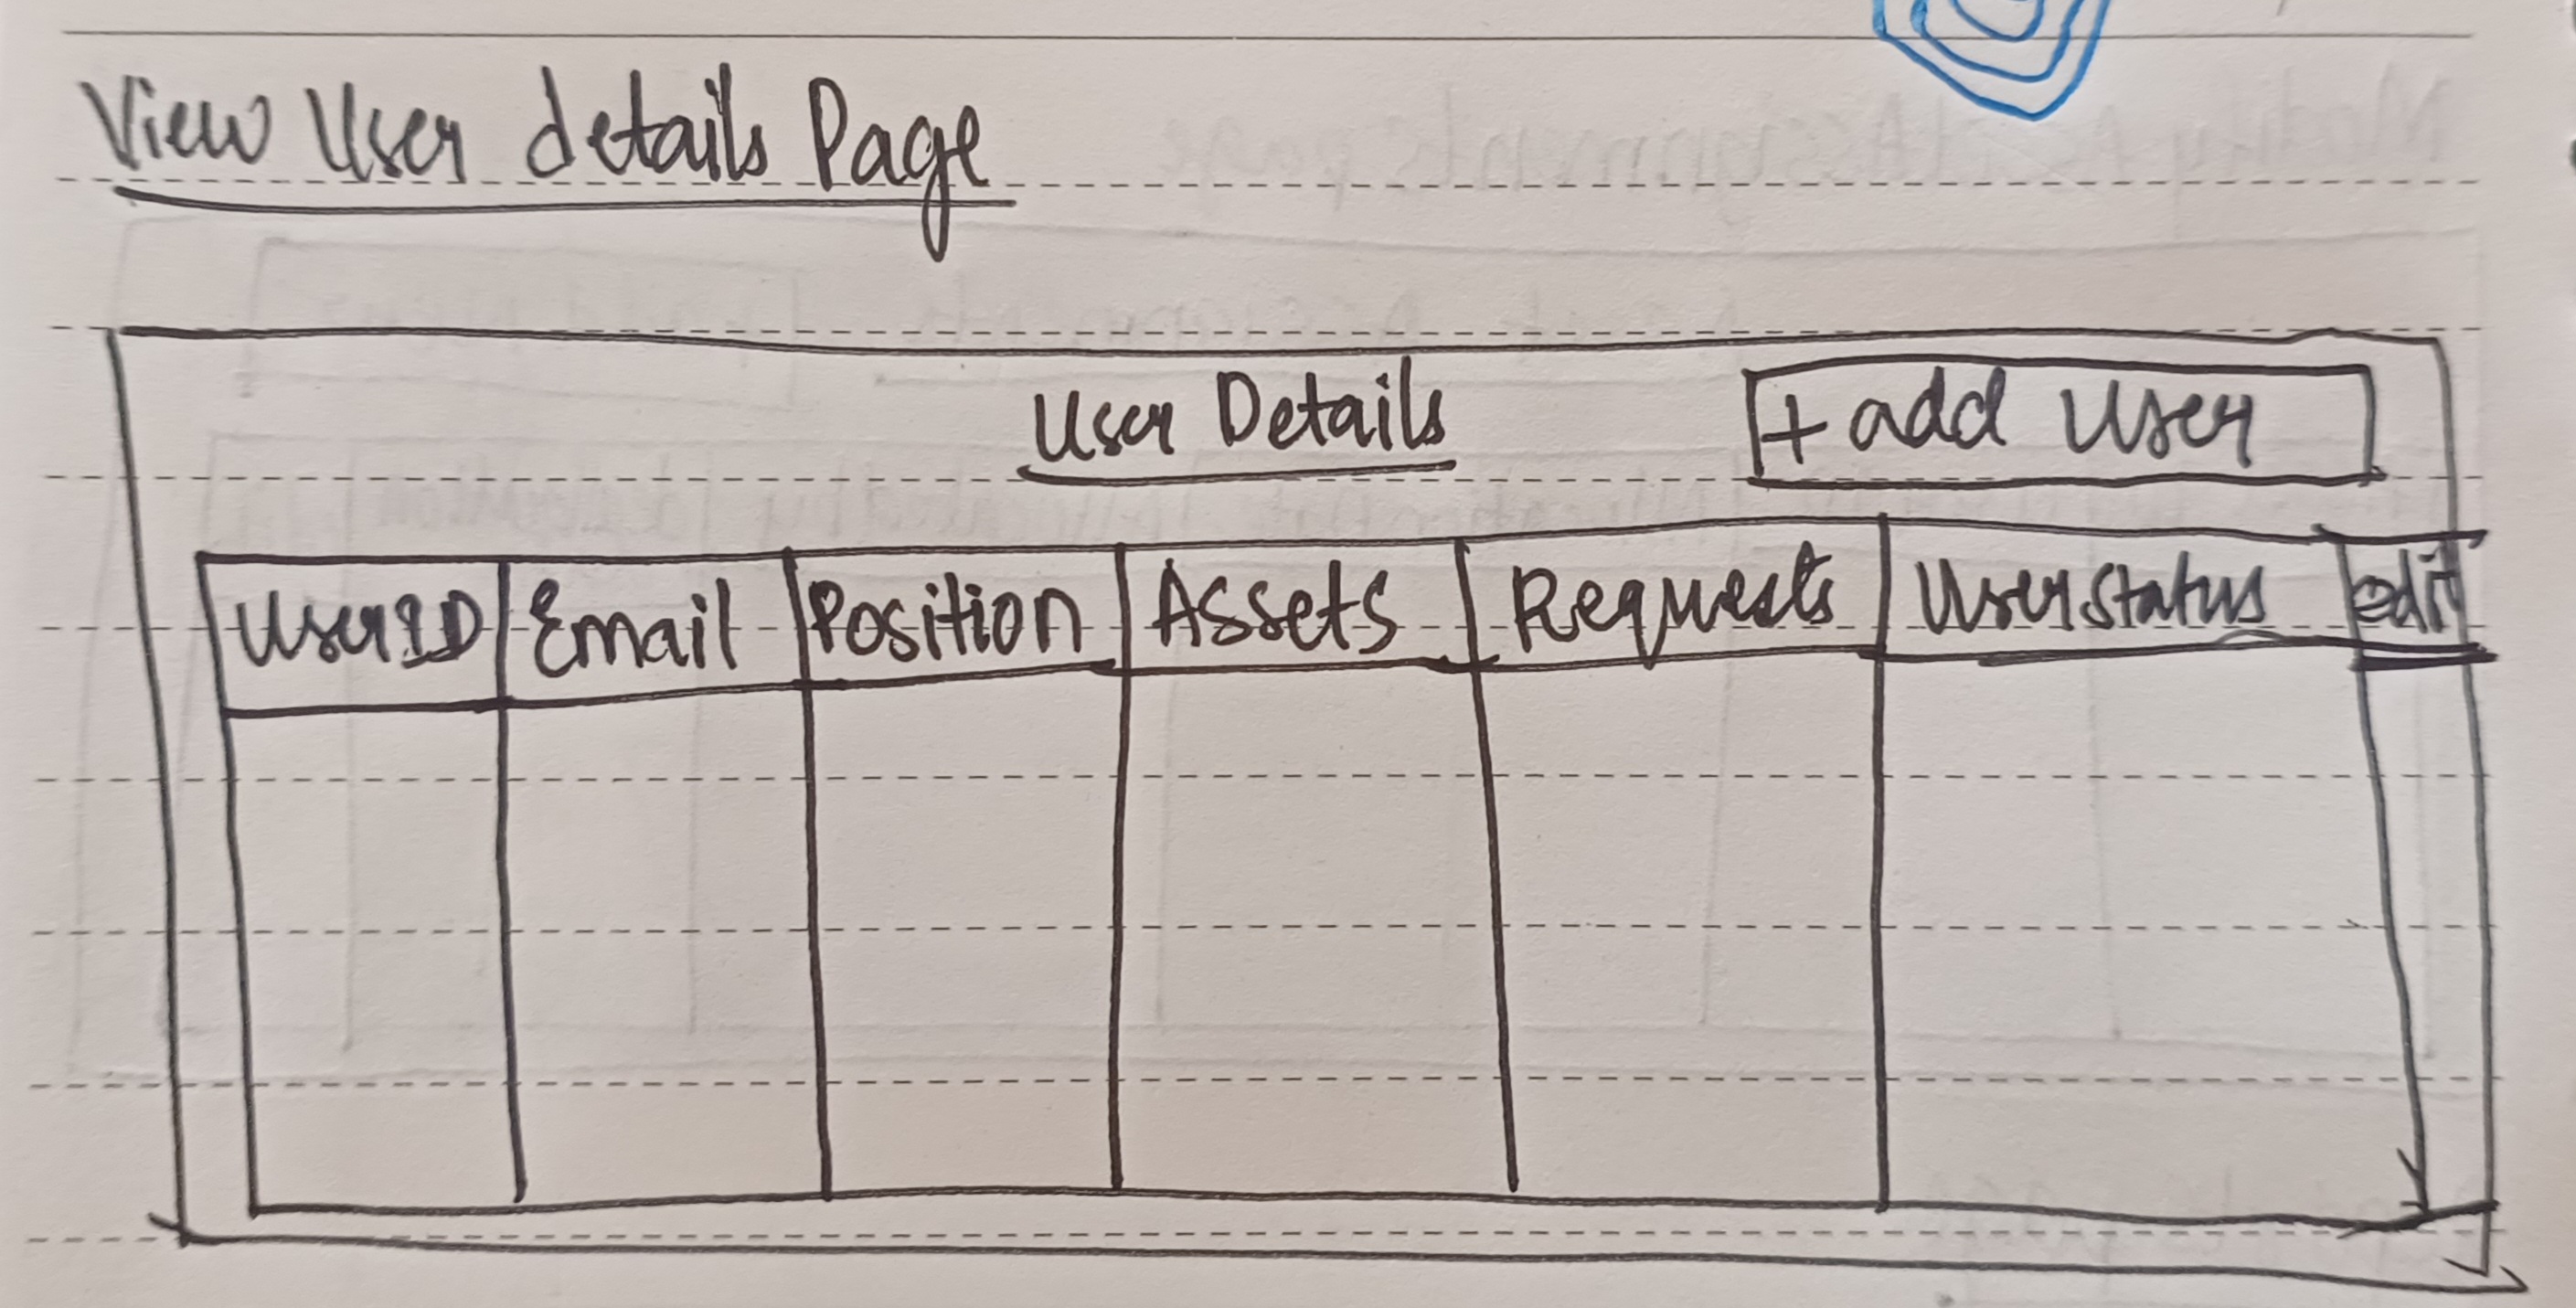 View User details Page
User Details
+ add User
UserID
Email
Position
Assets
Requests
User Status
edit